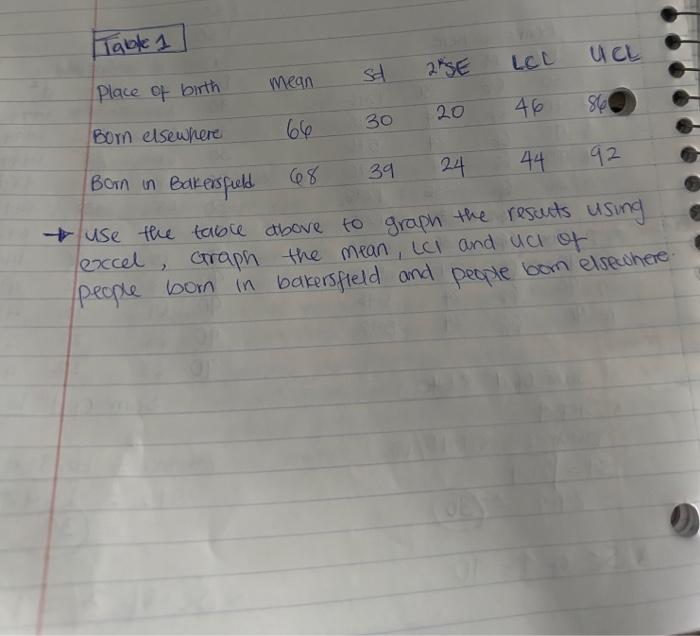 Table 1
Place of birth mean sd 2*SE LCL UCL
Born elsewhere 66 30 20 46 86
Born in Bakersfield 68 39 24 44 92
→ use the table above to graph the results using
excel, Graph the mean, LCI and UCI of
people born in bakersfield and people born elsewhere.